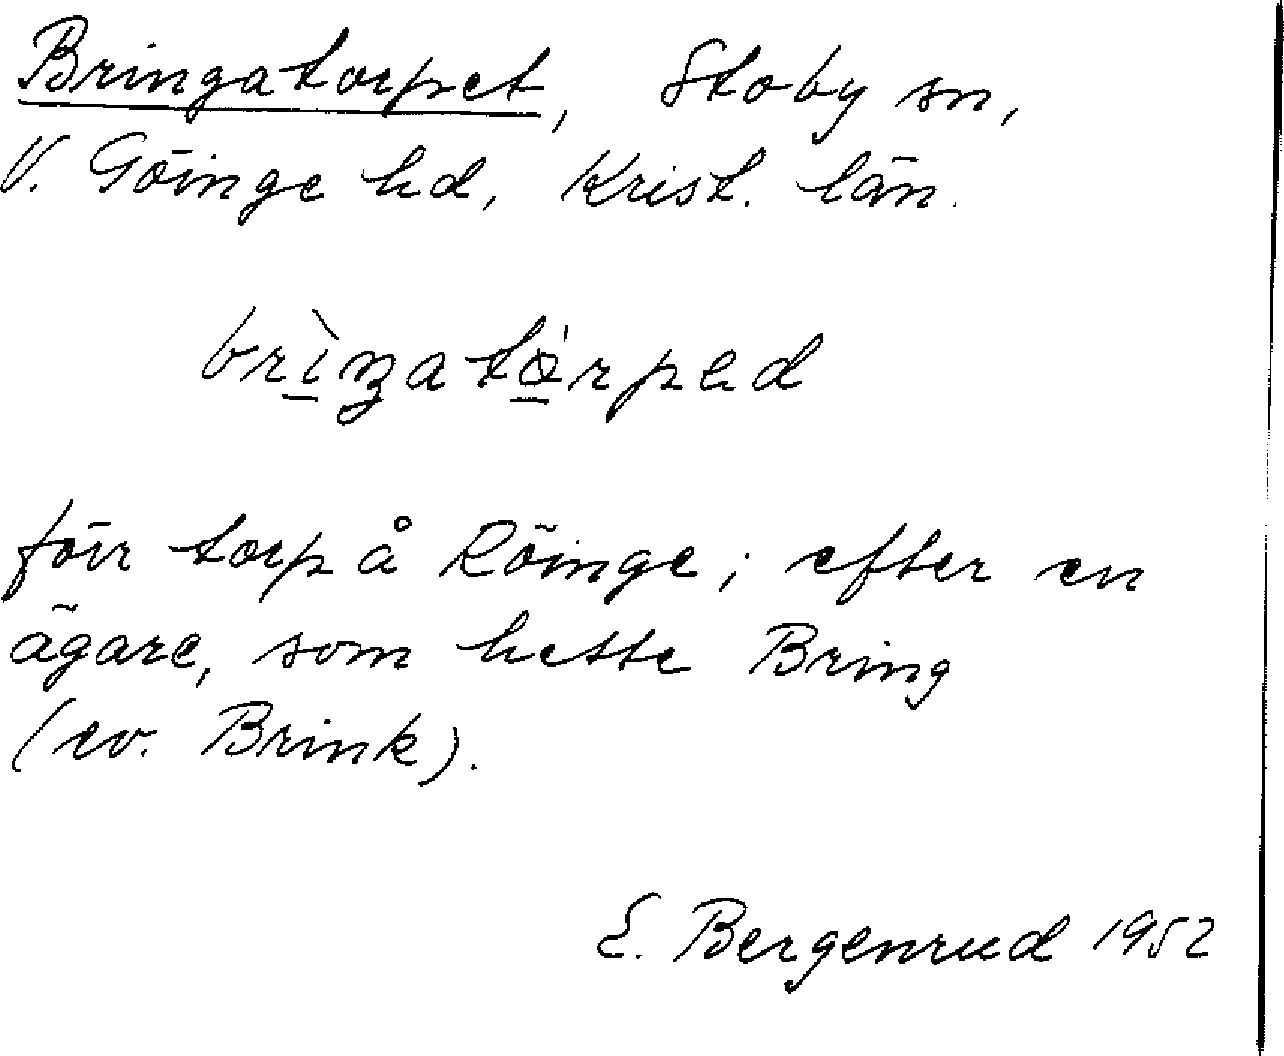 Bringatorpet, Stoby sn,
V. Göinge hd, Krist. län.
brìŋatȯ́rped
förr torp å Röinge; efter en
ägare, som hette Bring
(ev. Brink).
E. Bergenrud 1952